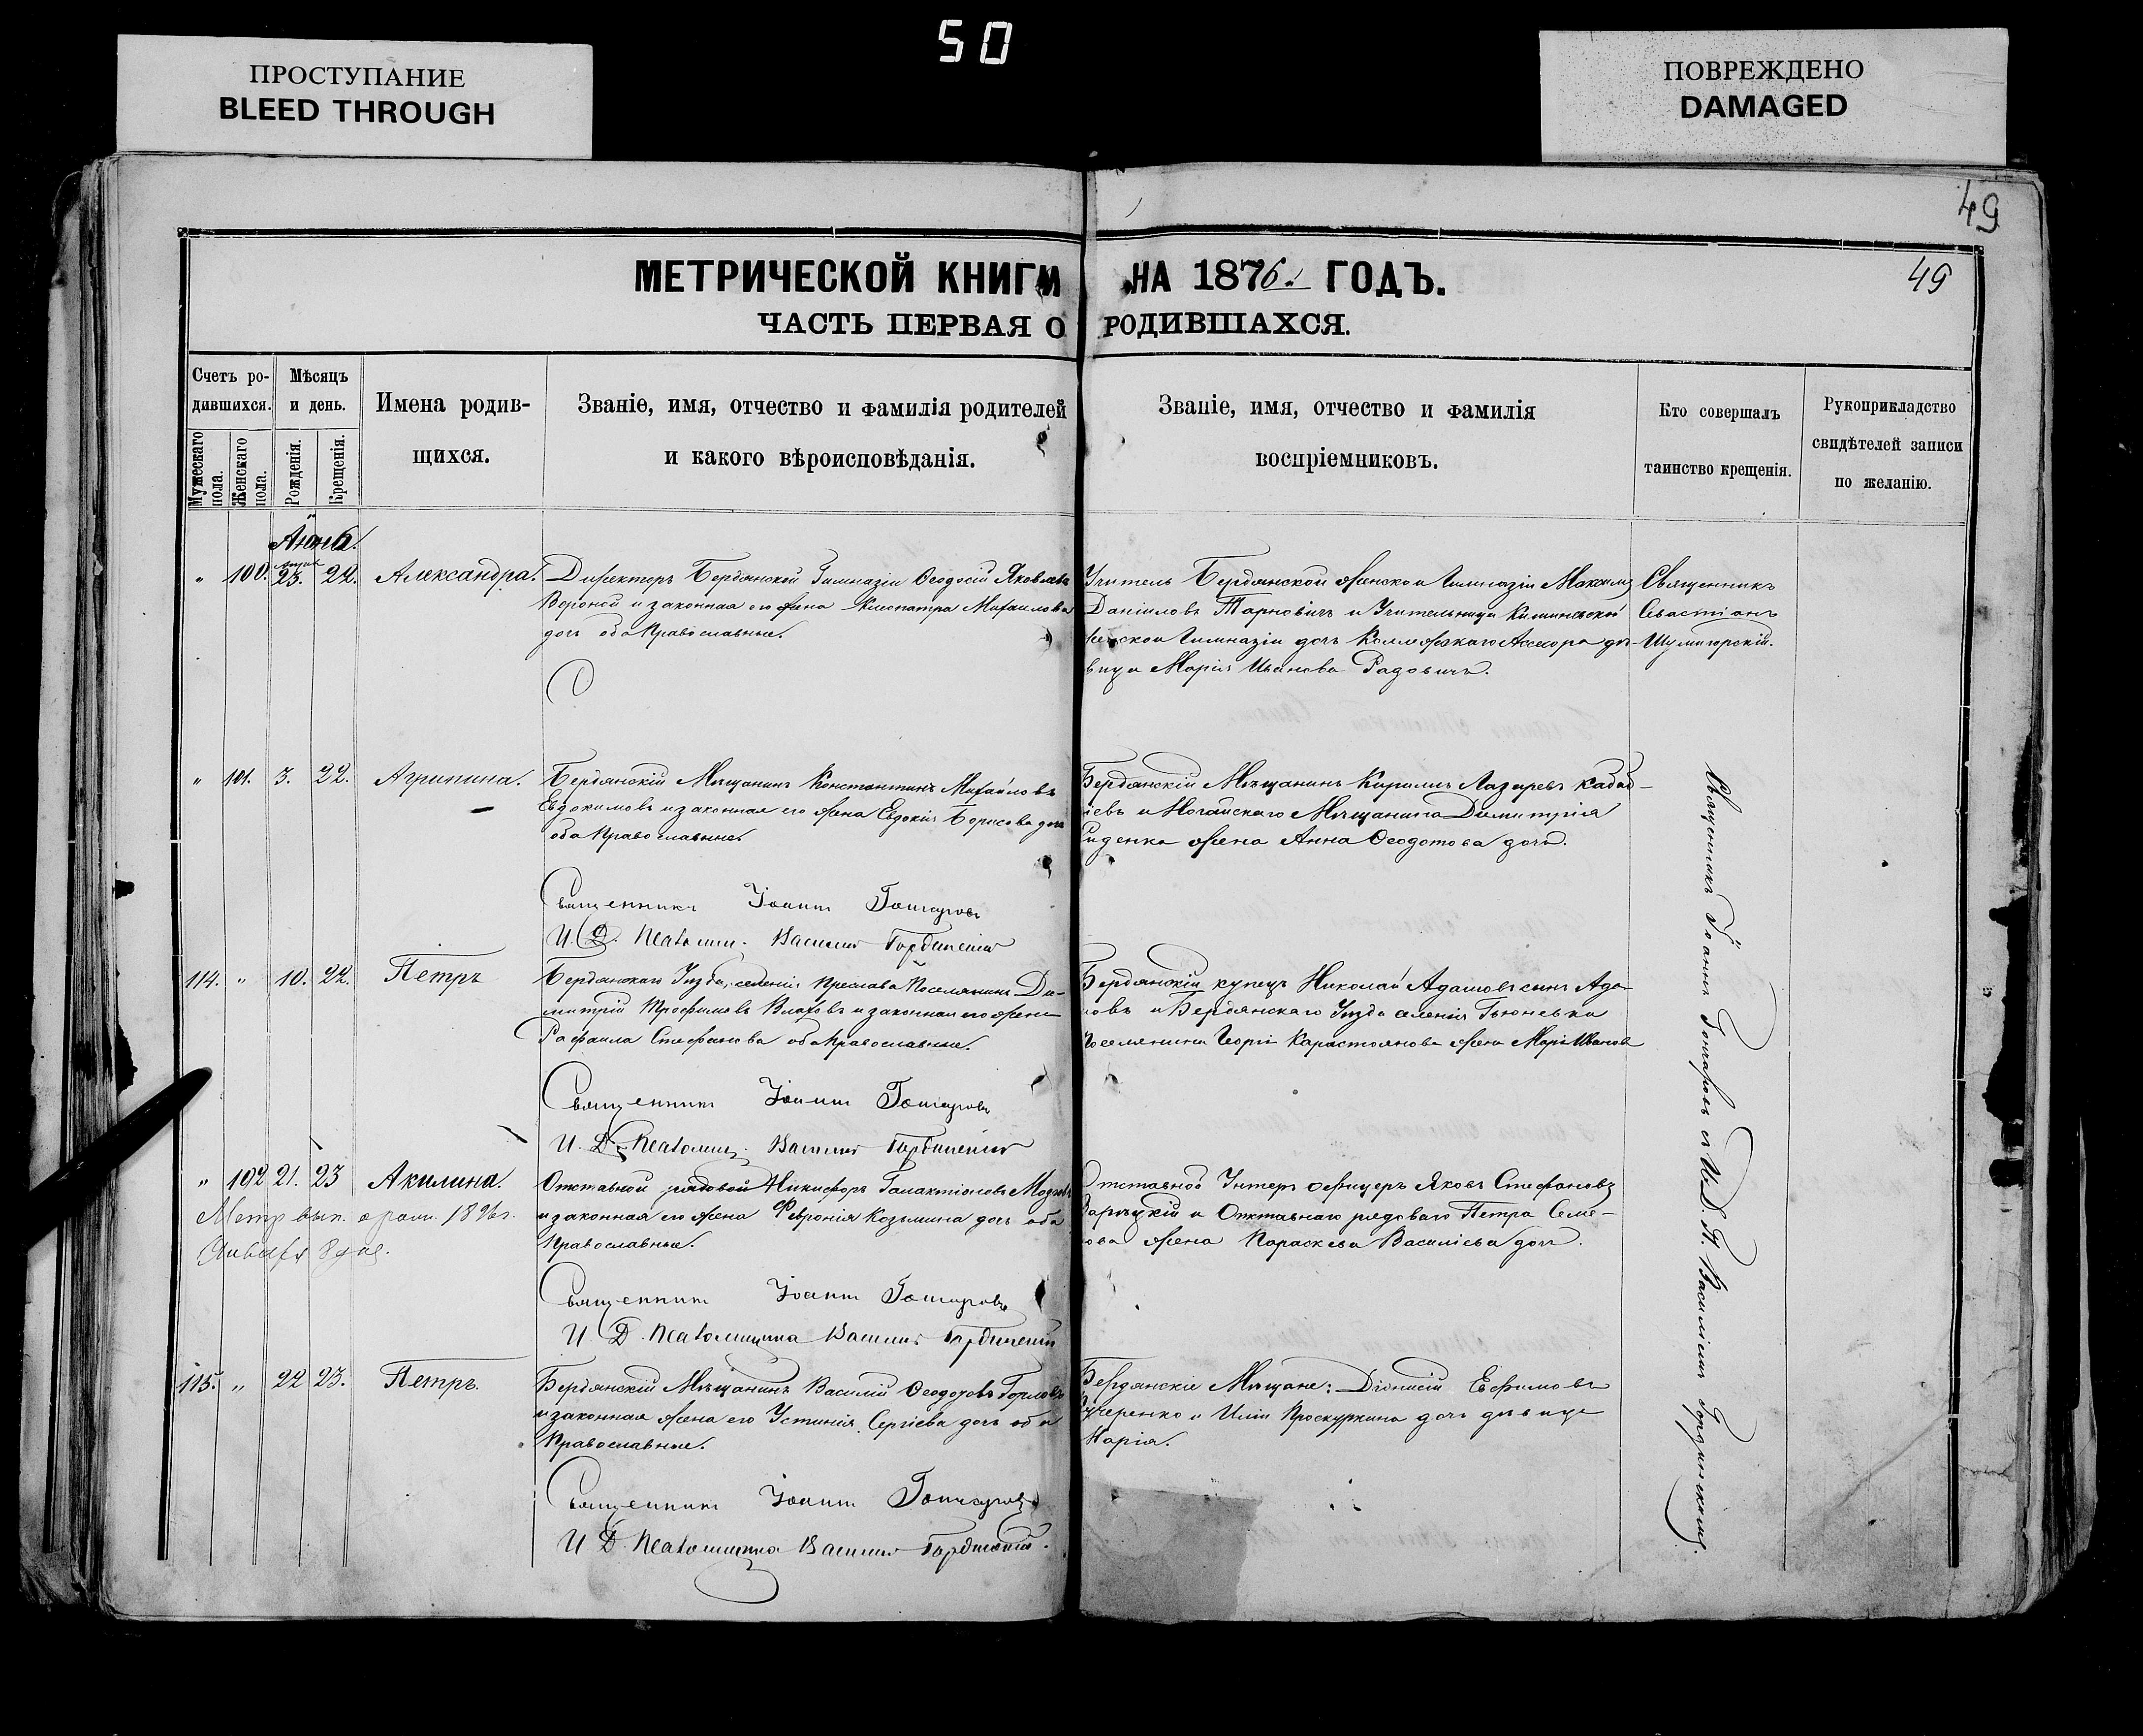 50
ПРОСТУПАНИЕ
BLEED THROUGH
ПОВРЕЖДЕНО
DAMAGED
49
МЕТРИЧЕСКОЙ КНИГИ НА 1876 ГОДЪ.
49
ЧАСТЬ ПЕРВАЯ О РОДИВШАХСЯ.
Счетъ ро-
дившихся.
Мужескаго пола.
Женскаго пола.
Мѣсяцъ
и день.
Рожденія.
Крещенія.
Имена родив-
шихся.
Званіе, имя, отчество и фамилія родителей
и какого вѣроисповѣданія.
Званіе, имя, отчество и фамилія
воспріемниковъ.
Кто совершалъ
таинство крещенія.
Рукоприкладство
свидѣтелей записи
по желанію.
" 100. 23. 22. Александра.
Директоръ Бердянской Гимназіи Ѳеодосій Яковлевъ
Вороной и законная его жена Клеопатра Михаилова
дочь оба Православные.
Учитель Бердянской женской Гимназіи Максимъ
Даніиловъ Тарновичъ и Учительница
женской Гимназіи дочь Коллежскаго Ассесора дѣ-
вица Марія Иванова Радовичъ.
Священникъ
Севастіанъ
Шумигорскій.
" 101. 3. 22. Агрипина.
Бердянскій Мѣщанинъ Константинъ Михайловъ
Евдокимовъ и законная его жена Евдокія Борисова дочь
оба Православные.
Бердянскій Мѣщанинъ Кирилъ Лазаревъ
и Ногайскаго Мѣщанина Димитрія
жена Анна Ѳеодотова дочь.
Священникъ Іоаннъ Гончаровъ
И. Д. Псаломщ. Василій Гординскій
114. " 10. 22. Петръ
Бердянскаго Уѣзда, селенія Преслава Поселянинъ Ди-
митрій Трофимовъ Влаховъ и законная его жена
Рафаила Стефанова оба Православные.
Бердянскій купецъ Николай Адамовъ сынъ Ада-
мовъ и Бердянскаго Уѣзда селенія Гюневка
Поселянина Георгія Карастоянова жена Марія Иванова
Священникъ Іоаннъ Гончаровъ
И. Д. Псаломщ. Василій Гординскій
" 102 21. 23 Акилина.
Отставной рядовой Никифоръ Галактіоновъ
и законная его жена Февронія Козьмина дочь оба
Православные.
Отставной Унтеръ офицеръ Яковъ Стефановъ
и Отставнаго рядоваго Петра Семе-
нова жена Параскева Василіева дочь.
Метр. вып. 1896 г.
Января 8 дня.
Священникъ Іоаннъ Гончаровъ
И. Д. Псаломщика Василій Гординскій
115. " 22 23. Петръ.
Бердянскій Мѣщанинъ Василій Ѳеодоровъ Горловъ
и законная жена его Устинія Сергіева дочь оба
Православные.
Бердянскіе Мѣщане: Діонисій Евфимовъ
Кучеренко и Иліи Проскуркина дочь дѣвица
Марія.
Священникъ Іоаннъ Гончаровъ
И. Д. Псаломщика Василій Гординскій.
Священникъ Іоаннъ Гончаровъ съ И. Д. П. Василіемъ Гординскимъ.